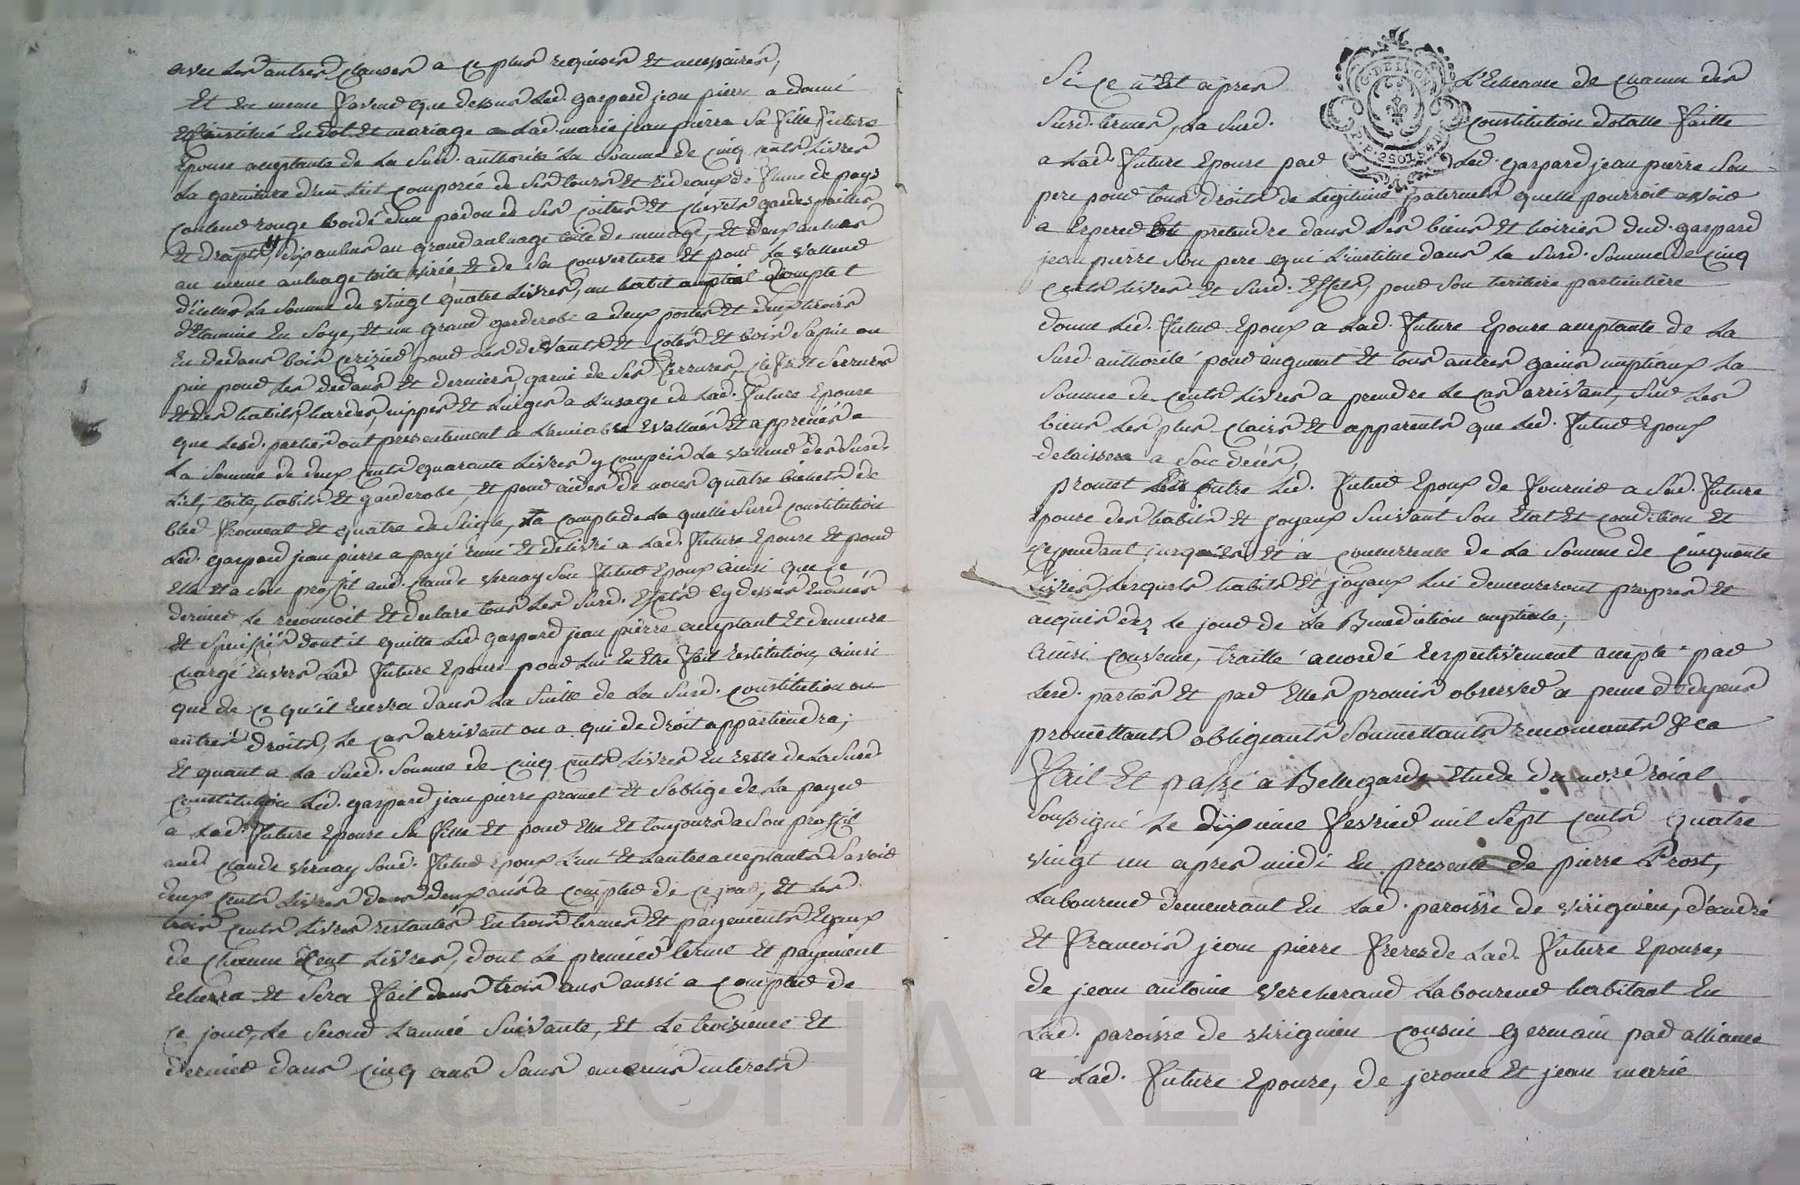 avec les autres clauses a ce plus requises et necessaires,
Et en meme faveur que dessus led. gaspard jean pierre a donné
et constitué en dot et mariage a lad. marie jean pierre sa fille future
Epouse acceptante de la susd. authorité la somme de cinq cents livres
la garniture d'un lit composée de ses tours et rideaux de
couleur rouge bordé d'un padou et ses coites et chevets gardes pailles
et draps, dix aulnes au grand aulnage toile de menage, et deux aulnes
au meme aulnage toile et de sa couverture et pour la valleur
d'icelles la somme de vingt quatre livres, un habit nuptial complet
d'etamine en soye, et un grand garderobe a deux portes et deux tiroirs
en dedans bois cerisier pour les devants et cotés et bois sapin ou
pin pour les dedans et derniers, garni de ses ferrures, clefs et serrures
et des habits, hardes, nippes et linges a l'usage de lad. future Epouse
que lesd. parties ont presentement a l'amiable evallués et appreciés a
la somme de deux cents quarante livres y compris la valleur des susd.
lit, toile, habits et garderobe, et pour aides de noces quatre bichets de
bled froment et quatre de seigle, a compte de la quelle susd. constitution
led. gaspard jean pierre a payé remis et delivré a lad. future Epouse et pour
elle et a son proffit aud. claude vernay son futur Epoux ainsi que ce
dernier le reconnoit et declare tous les susd. effets cy dessus enoncés
et specifiés dont il quitte led. gaspard jean pierre acceptant et demeure
chargé envers lad. future Epouse pour lui en etre fait restitution, ainsi
que de ce qu'il recevra dans la suitte de la susd. constitution ou
autres droits, le cas arrivant ou a qui de droit appartiendra;
Et quant a la susd. somme de cinq cents livres en reste de la susd.
constitution led. gaspard jean pierre promet et s'oblige de la payer
a lad. future Epouse sa fille et pour elle et toujours a son proffit
aud. claude vernay sond. futur Epoux l'un et l'autre acceptants Savoir
deux cents livres dans deux ans a compter de ce jour, et les
trois cents livres restantes en trois termes et payements egaux
de chacun cent livres, dont le premier terme et payement
echerra et sera fait dans trois ans aussi a compter de
ce jour, le second l'année suivante, et le troisieme et
dernier dans cinq ans sans aucuns interets
Si ce n'est apres l'Echeance de chacun des
susd. termes, la susd. constitution dotalle faitte
a lad. future Epouse par led. gaspard jean pierre son
pere pour tous droits de legitime paternels quelle pourroit avoir
a Esperer et pretendre dans les biens et hoiries dud. gaspard
jean pierre son pere qui l'institue dans la susd. somme de cinq
cents livres et susd. effets, pour son heritiere particuliere
donne led. futur Epoux a lad. future Epouse acceptante de la
susd. authorité pour augment et tous autres gains nuptiaux la
somme de cents livres a prendre le cas arrivant, sur les
biens les plus clairs et apparents que led. futur Epoux
delaissera a son decés,
promet en outre led. futur Epoux de fournir a sad. future
Epouse des habits et joyaux suivant son etat et condition et
cependant jusques et a concurrence de la somme de cinquante
livres lesquels habits et joyaux lui demeureront propres et
acquis dez le jour de la Benediction nuptiale;
ainsi convenu, traitté accordé respectivement accepté par
lesd. parties et par elles promis observer a peine de depens
promettants obligeants soumettants renonceants &ca
Fait et passé a Bellegarde etude du nore roial
soussigné le dixieme fevrier mil sept cents quatre
vingt un apres midi en presence de pierre Prost,
laboureur demeurant en lad. paroisse de virignieu, d'andré
et francois jean pierre freres de lad. future Epouse,
de jean antoine vercherand laboureur habitant en
lad. paroisse de virignieu cousin germain par alliance
a lad. future Epouse, de jerome et jean marie
CHAREYRON